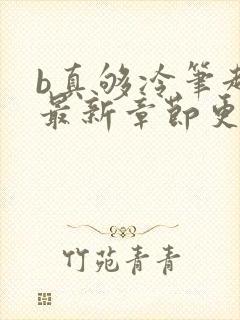 b真够冷笔趣
最新章节更
竹苑青青